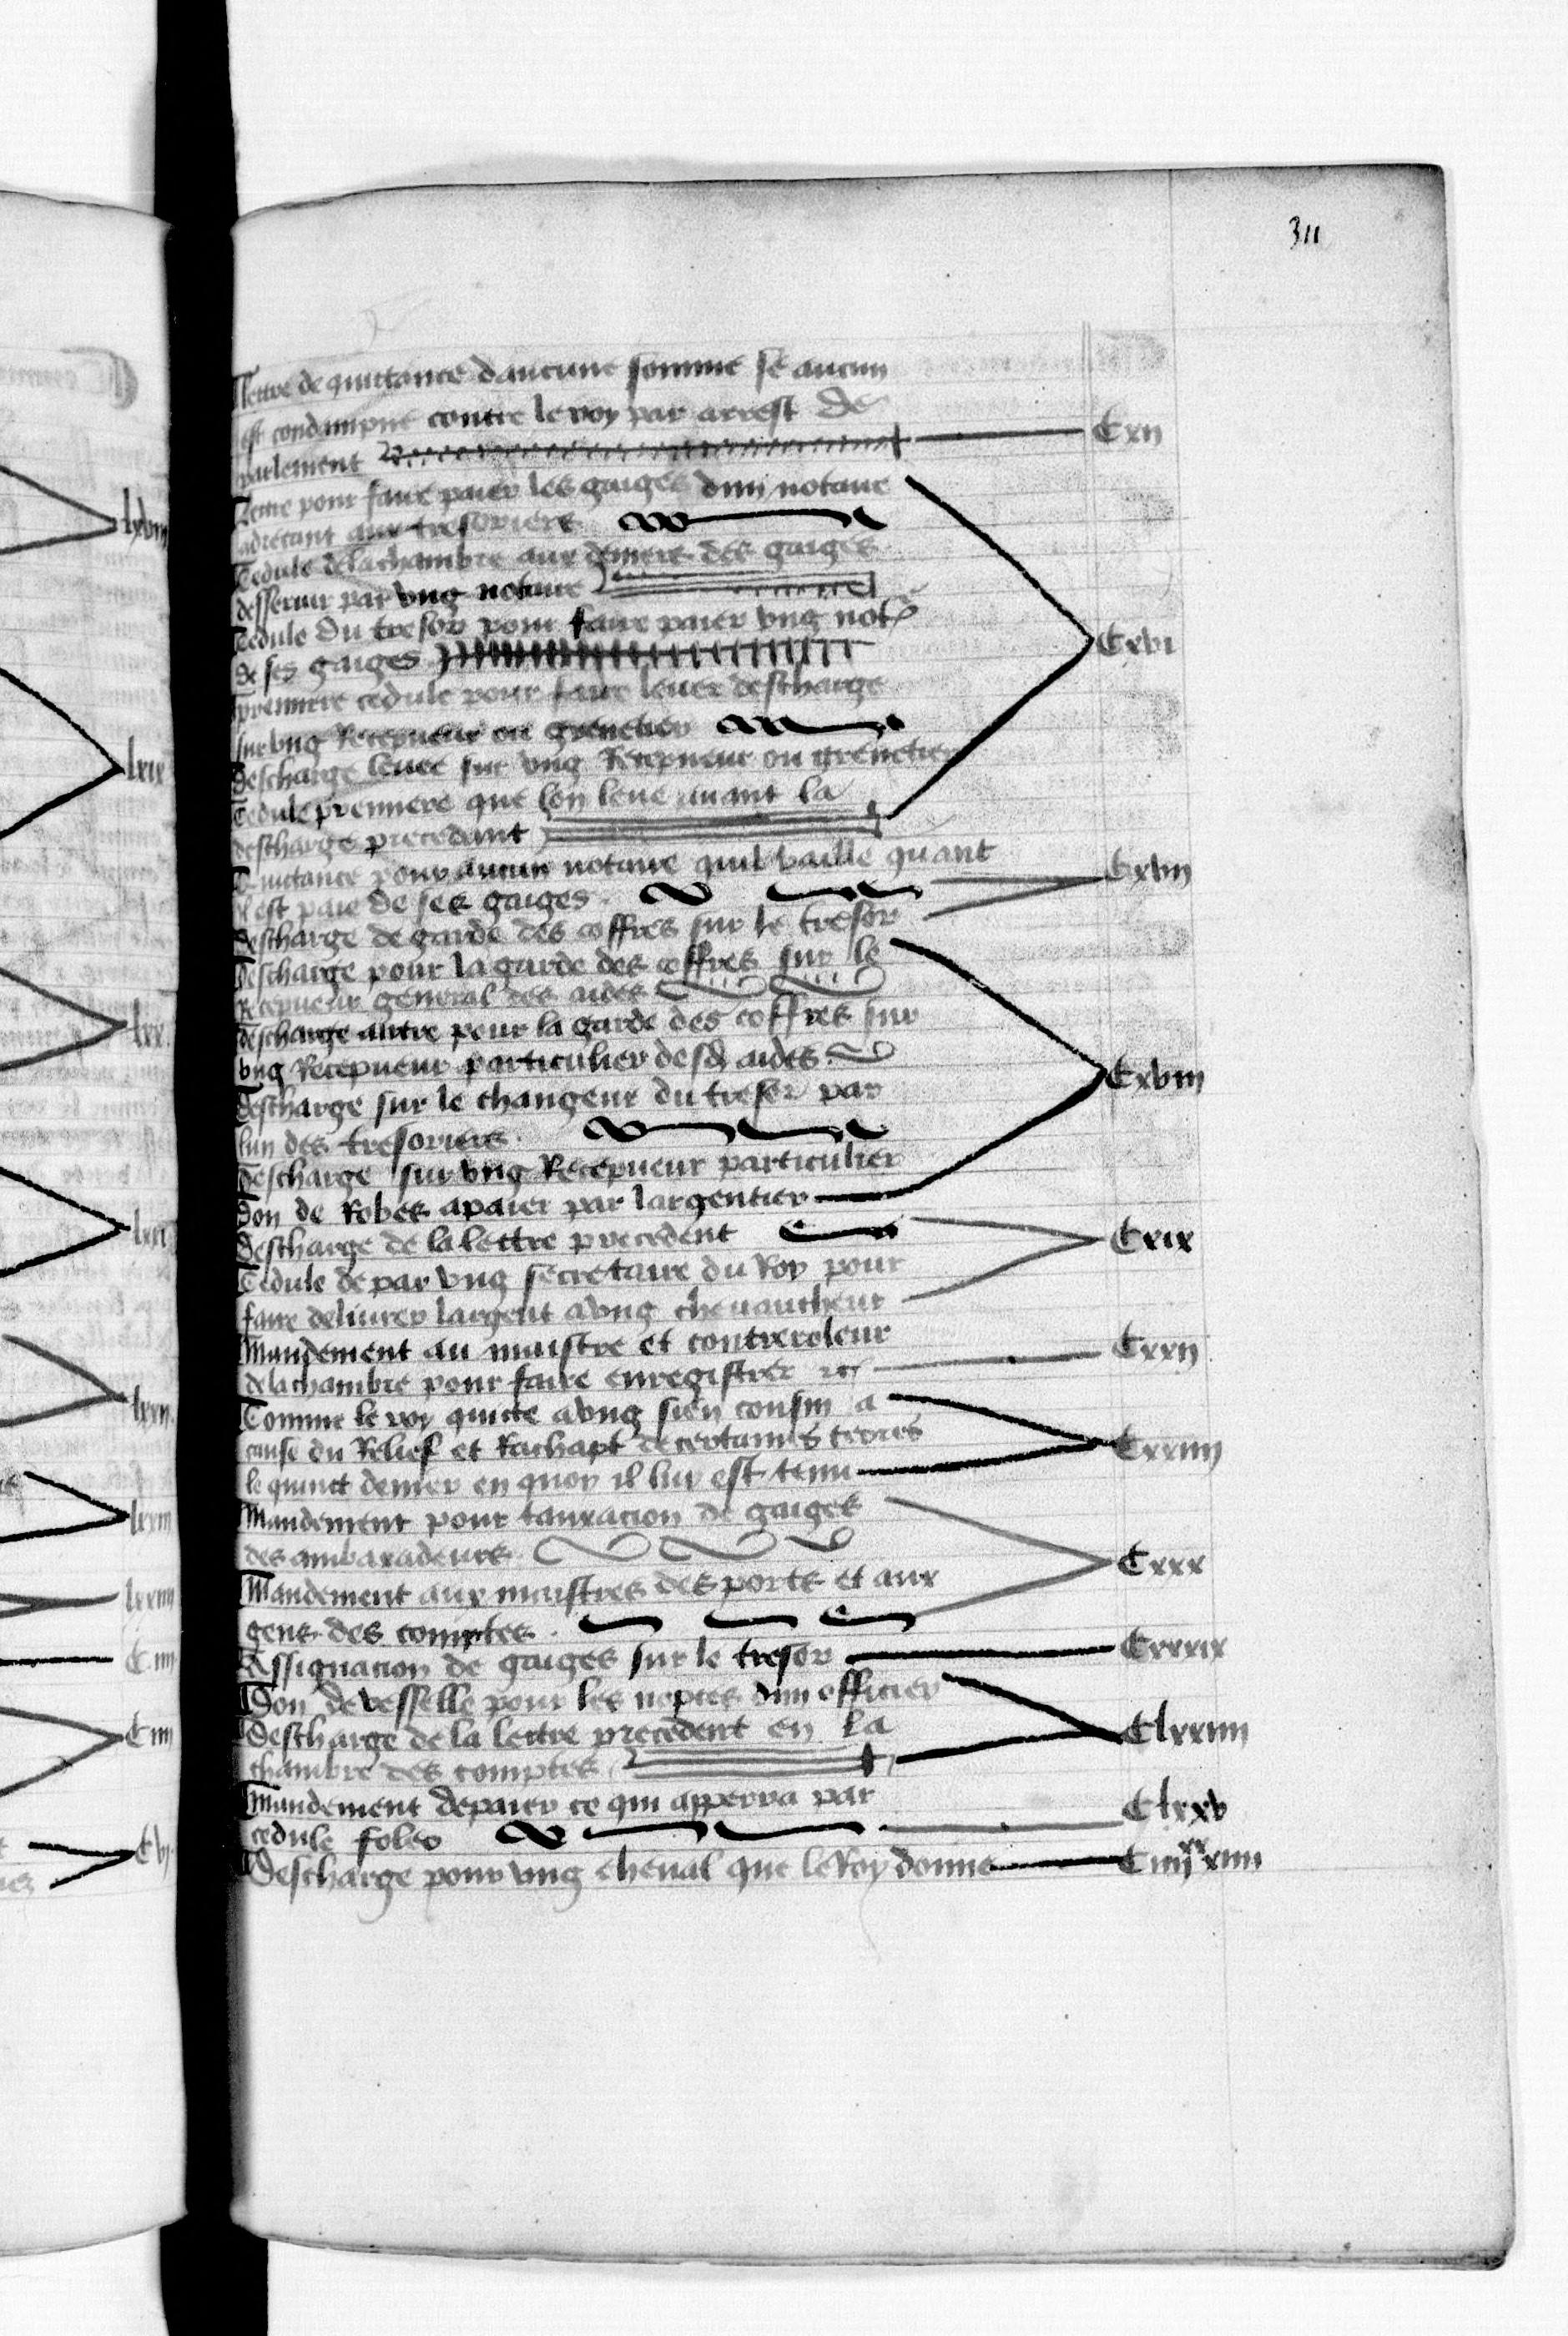 311
Lettre de quittance daucune somme se aucun
est condampne contre le roy par arrest de
parlement Cxii
Lettre pour faire paier les gaiges dun notaire
adrecant aux tresoriers
Cedule de la chambre aux deniers des gaiges
desseruir par vng notaire
Cedule du tresor pour faire paier vng not
de ses gaiges Cxvi
premiere cedule pour faire leuer descharge
sur vng Recepueur ou grenetier
descharge leuee sur vng Recepueur ou grenetier
Cedule premiere que lon leue auant la
descharge precedant
Quictance pour aucun notaire quil baille quant
il est paie de ses gaiges Cxvii
descharge de garde des coffres sur le tresor
descharge pour la garde des coffres sur le
Recepueur general des aides
descharge autre pour la garde des coffres sur
vng Recepueur particulier desd aides
descharge sur le changeur du tresor par Cxviii
lun des tresoriers
descharge sur vng Recepueur particulier
Don de Robes a paier par largentier
descharge de la lettre precedent Cxix
Cedule de par vng secretaire du Roy pour
faire deliurer largent a vng cheuaucheur
Mandement au maistre et contreroleur
de la chambre pour faire enregistrer etc Cxxii
Comme le roy quicte a vng sien cousin a
cause du Relief et Rachapt de certaines terres Cxxiiii
le quinct denier en quoy il luy est tenu
Mandement pour tauxacion de gaiges
des ambaxadeurs Cxxx
Mandement aux maistres des ports et aux
gens des comptes
Assignacion de gaiges sur le tresor Cxxxix
Don de vesselle pour les nopces dun officier
descharge de la lettre precedent en la Clxxiiii
chambre des comptes
Mandement de paier ce qui apperra par
cedule Clxxv
Descharge pour vng cheual que le Roy donne Ciiii xx xiiii